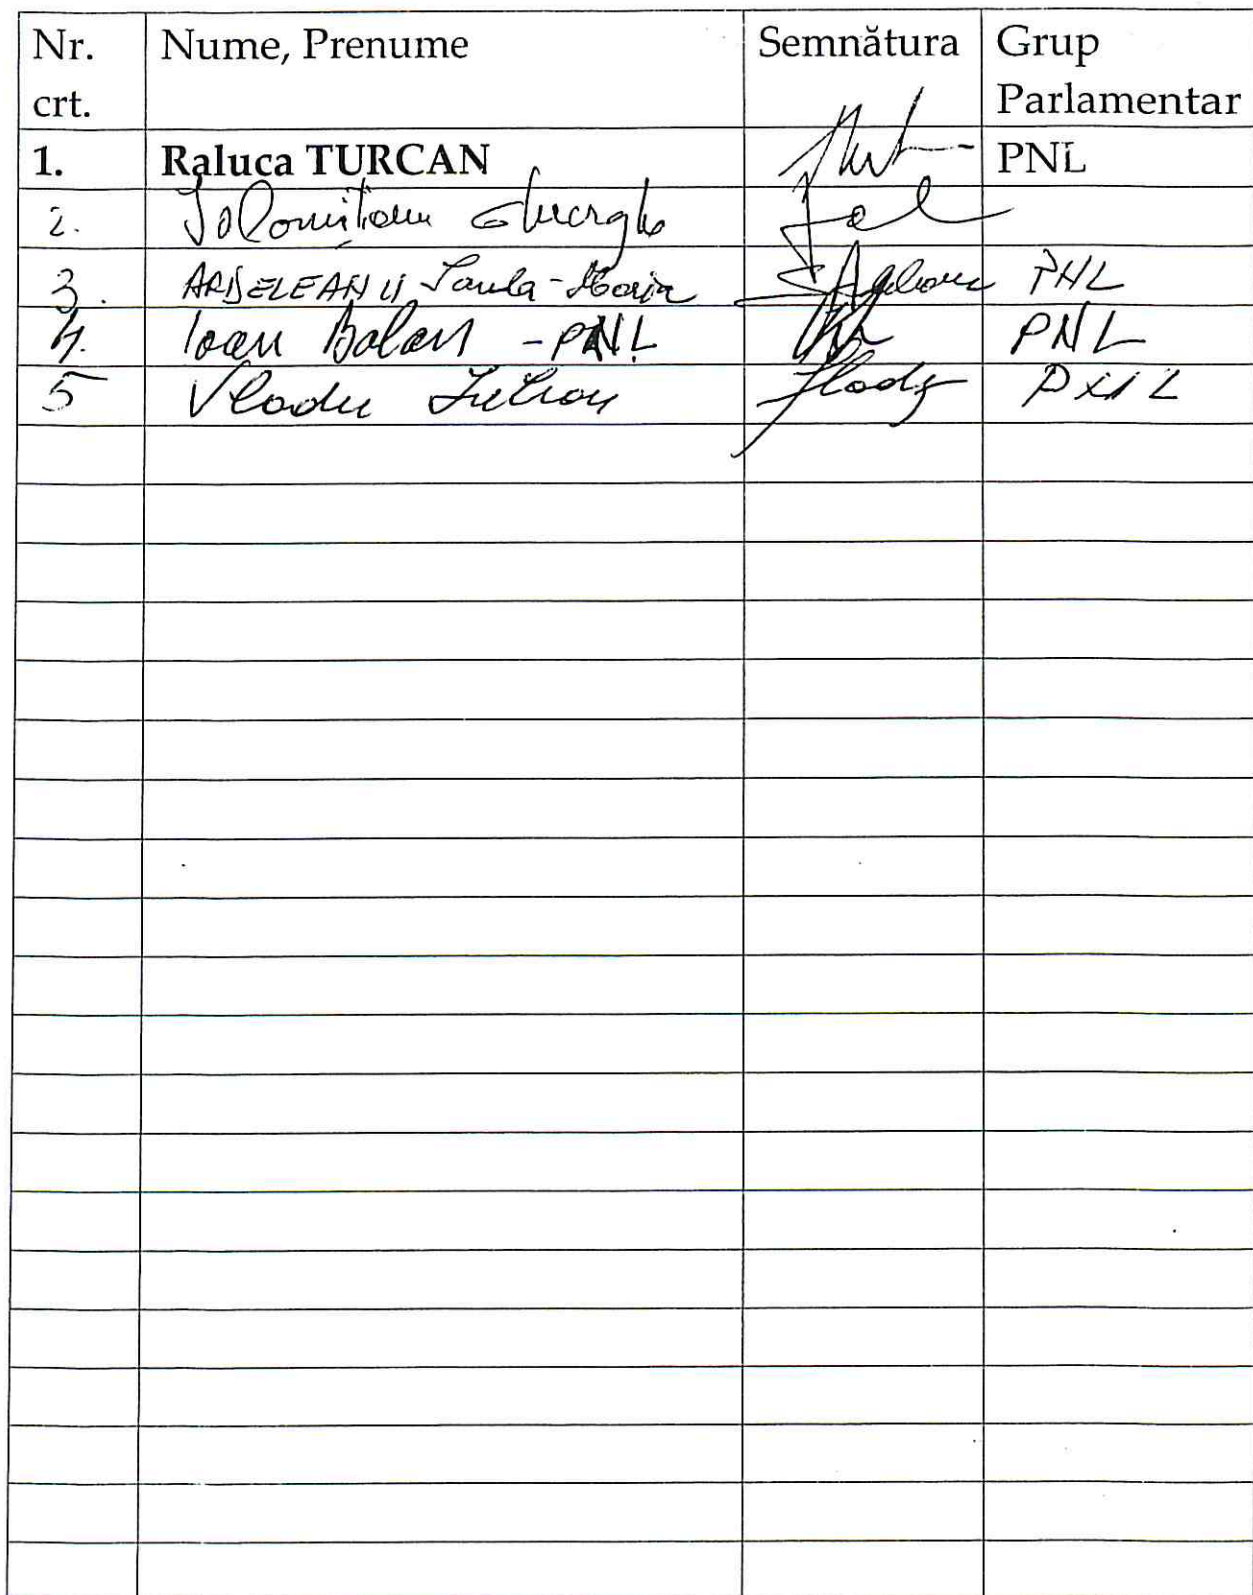 Nr. crt. Nume, Prenume Semnătura Grup Parlamentar
1. Raluca TURCAN PNL
2. Gheorghe
3. ARDELEANU Maria PNL
4. Ioan Balan - PNL PNL
5 Vladu PNL